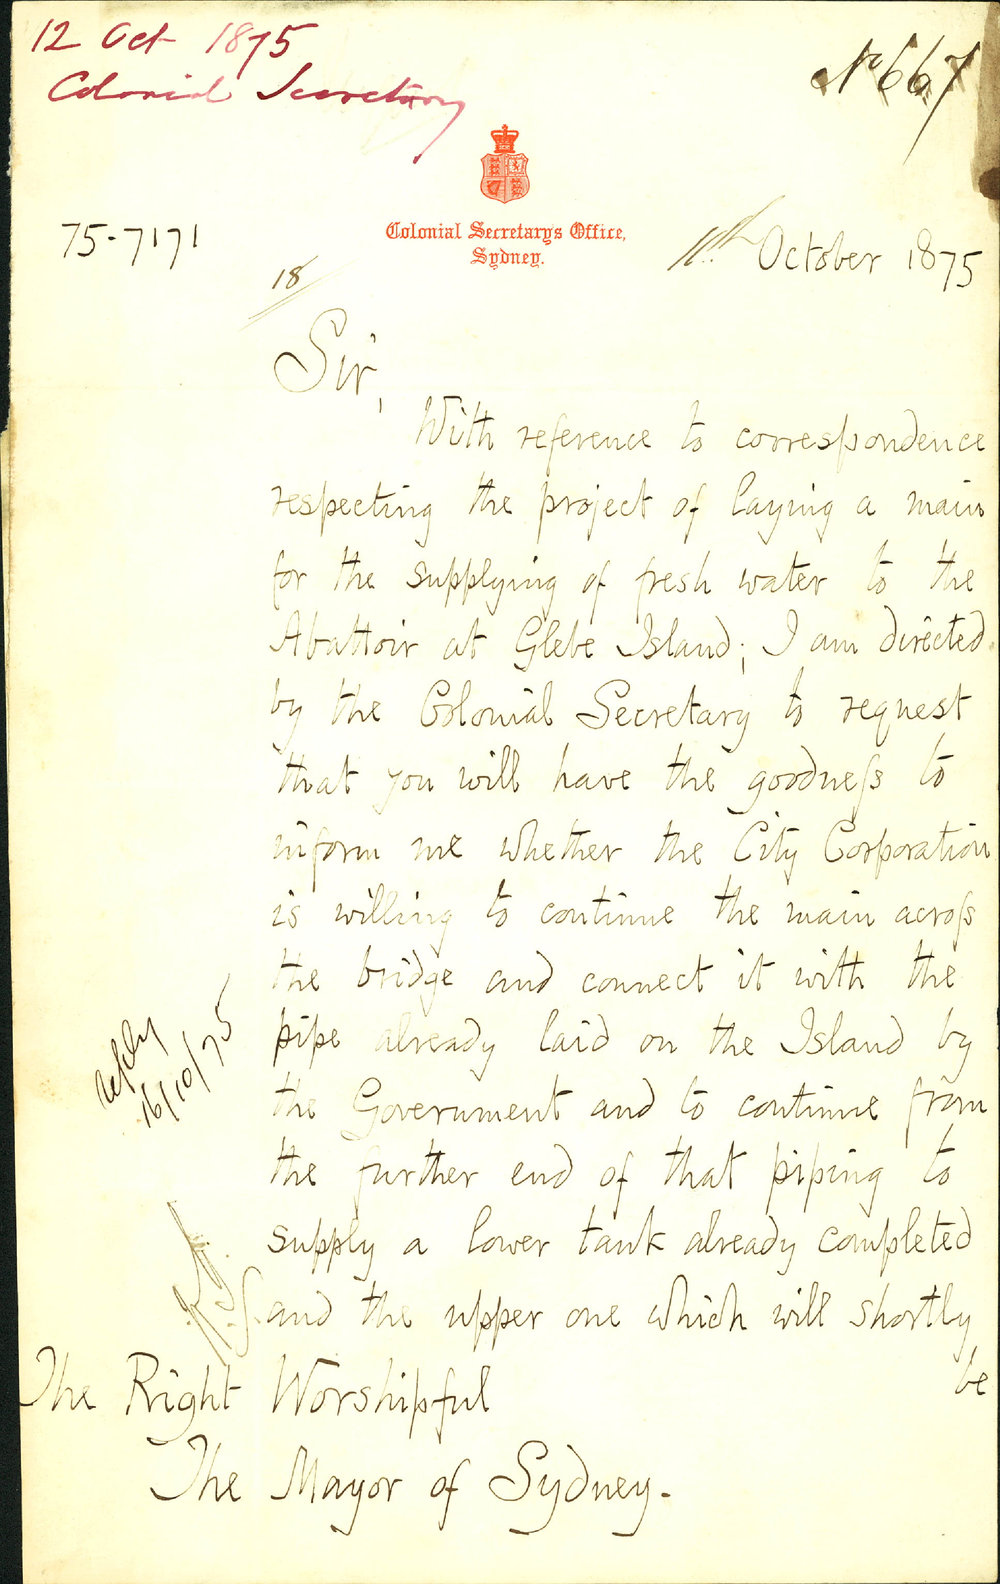 12 Oct 1875
Colonial Secretary
No 667
Colonial Secretarys Office,
Sydney.
75-7171
11th October 1875
18
Sir,
With reference to correspondence
respecting the project of laying a main
for the supplying of fresh water to the
Abattoir at Glebe Island; I am directed
by the Colonial Secretary to request
that you will have the goodneſs to
inform me whether the City Corporation
is willing to continue the main acroſs
the bridge and connect it with the
pipe already laid on the Island by
the Government and to continue from
the further end of that piping to
supply a lower tank already completed
and the upper one which will shortly
be
reply
16/10/75
The Right Worshipful
The Mayor of Sydney.